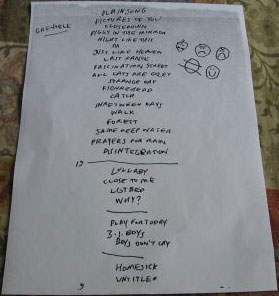 PLAINSONG
PICTURES OF YOU
GRENOBLE
CLOSEDOWN
PIGGY IN THE MIRROR
NIGHT LIKE THIS
M
JUST LIKE HEAVEN
LAST DANCE
FASCINATION STREET
ALL CATS ARE GREY
STRANGE DAY
FIGUREHEAD
CATCH
INBETWEEN DAYS
WALK
FOREST
SAME DEEP WATER
PRAYERS FOR RAIN
DISINTEGRATION
LULLABY
CLOSE TO ME
LGTBED
WHY?
PLAY FOR TODAY
3.I.BOYS
BOYS DON'T CRY
HOMESICK
UNTITLED
9